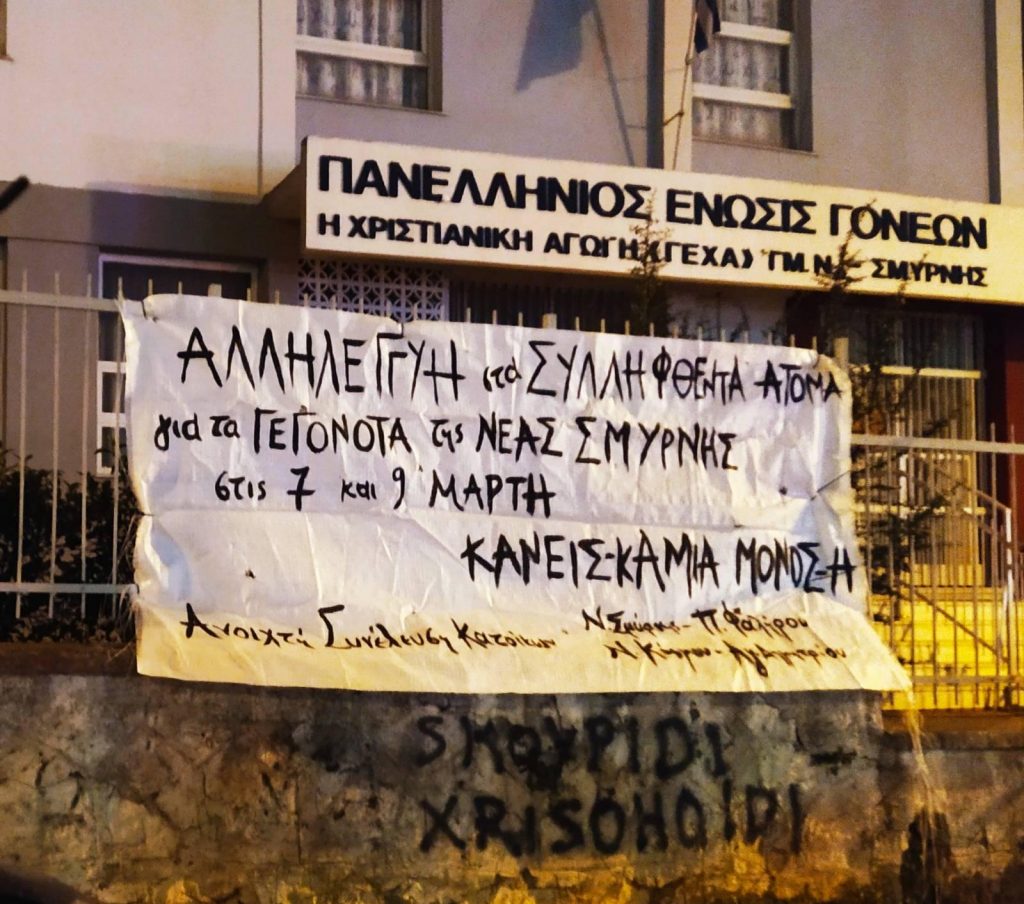 ΠΑΝΕΛΛΗΝΙΟΣ ΕΝΩΣΙΣ ΓΟΝΕΩΝ
Η ΧΡΙΣΤΙΑΝΙΚΗ ΑΓΩΓΗ «ΓΕΧΑ» ΤΜ. Ν. ΣΜΥΡΝΗΣ
ΑΛΛΗΛΕΓΓΥΗ στα ΣΥΛΛΗΦΘΕΝΤΑ ΑΤΟΜΑ
για τα ΓΕΓΟΝΟΤΑ της ΝΕΑΣ ΣΜΥΡΝΗΣ
στις 7 και 9 ΜΑΡΤΗ
ΚΑΝΕΙΣ-ΚΑΜΙΑ ΜΟΝΟΣ-Η
Ανοιχτή Συνέλευση Κατοίκων Ν. Σμύρνης - Π. Φαλήρου
Ν. Κόσμου - Αγ. Δημητρίου
SKOYPIDI
XRISOHOIDI